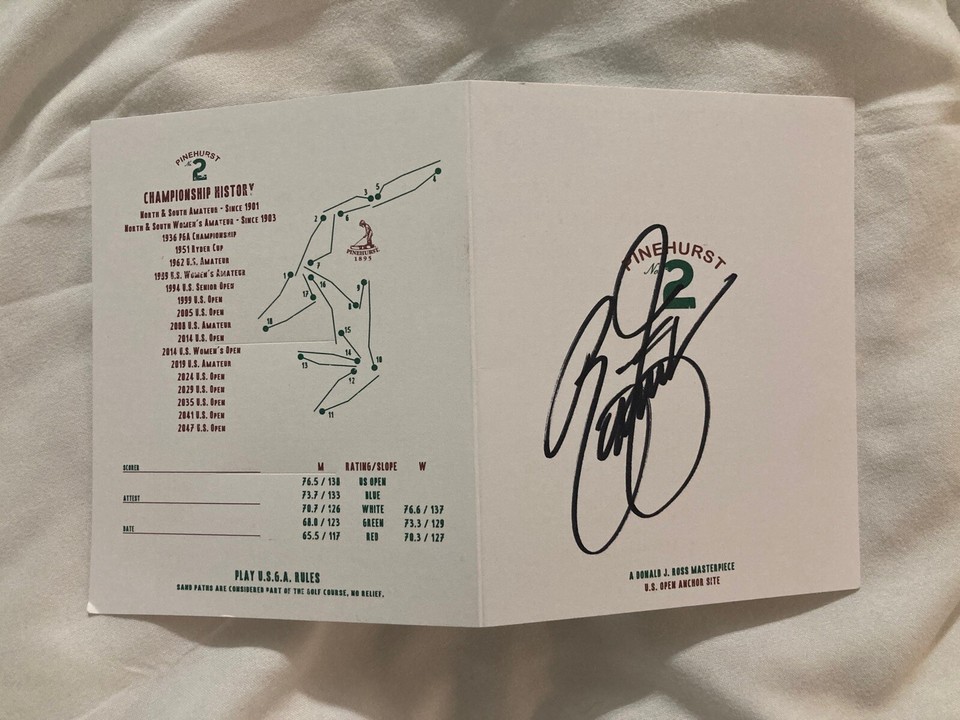 PINEHURST
No 2
CHAMPIONSHIP HISTORY
NORTH & SOUTH AMATEUR - SINCE 1901
NORTH & SOUTH WOMEN'S AMATEUR - SINCE 1903
1936 PGA CHAMPIONSHIP
1951 RYDER CUP
1962 U.S. AMATEUR
1989 U.S. WOMEN'S AMATEUR
1994 U.S. SENIOR OPEN
1999 U.S. OPEN
2005 U.S. OPEN
2008 U.S. AMATEUR
2014 U.S. OPEN
2014 U.S. WOMEN'S OPEN
2019 U.S. AMATEUR
2024 U.S. OPEN
2029 U.S. OPEN
2035 U.S. OPEN
2041 U.S. OPEN
2047 U.S. OPEN
3 5
4
2 6
PINEHURST
1895
7
1
16
17 9
8
18
15
14
13 10
12
11
SCORER
ATTEST
DATE
M RATING/SLOPE W
76.5 / 138 US OPEN
73.7 / 133 BLUE
70.7 / 126 WHITE 76.6 / 137
68.0 / 123 GREEN 73.3 / 129
65.5 / 117 RED 70.3 / 127
PLAY U.S.G.A. RULES
SAND PATHS ARE CONSIDERED PART OF THE GOLF COURSE, NO RELIEF.
PINEHURST
No 2
A DONALD J. ROSS MASTERPIECE
U.S. OPEN ANCHOR SITE